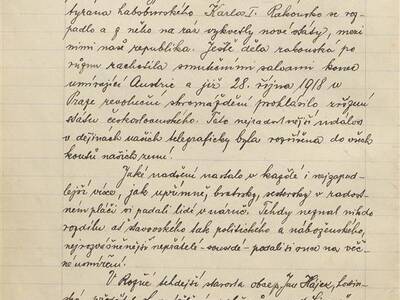 tyrana habsburského Karla I. Rakousko se roz-
padlo a z něho na ráz vykvetly nové státy, mezi
nimi naše republika. Ještě děla rakouská po
různu rachotila smutečními salvami konec
umírající Austrie a již 28. října 1918 v
Praze revoluční shromáždění prohlásilo zřízení
státu československého. Tato nejradostnější událost
v dějinách našich telegraficky byla rozšířena do všech
koutů naší země.
Jaké nadšení nastalo v každé i nejzapad-
lejší vísce, jak upřímně, bratrsky, sestersky v radost-
ném pláči si padali lidé v náruč. Tehdy neznal nikdo
rozdílu ať stavovského tak politického a náboženského,
nejrozvášněnější nepřátelé - sousedé - podali si ruce na věč-
né usmíření.
V Rozné tehdejší starosta obce p. Jan Hájek,